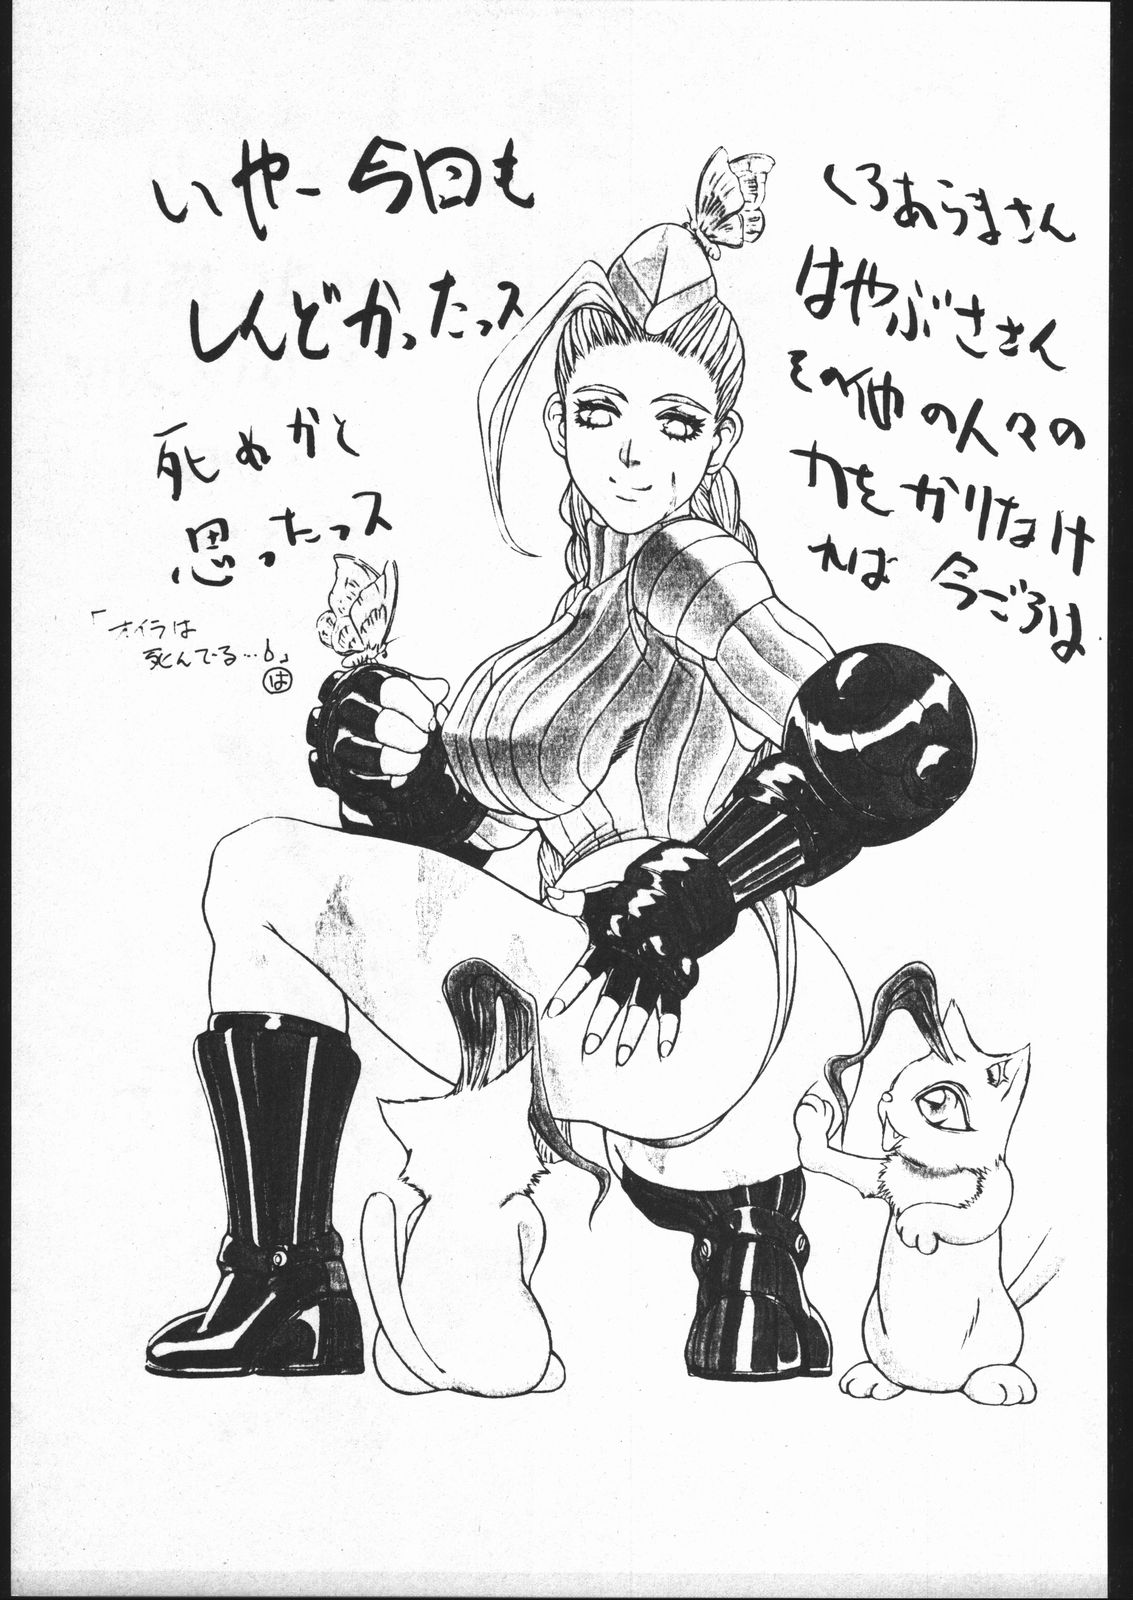 いやー今回も
しんどかったっス
死ぬかと
思ったっス
「オイラは
死んでる…よ」
は
くろあらまさん
はやぶささん
その他の人々の
力をかりなけ
れば今ごろは